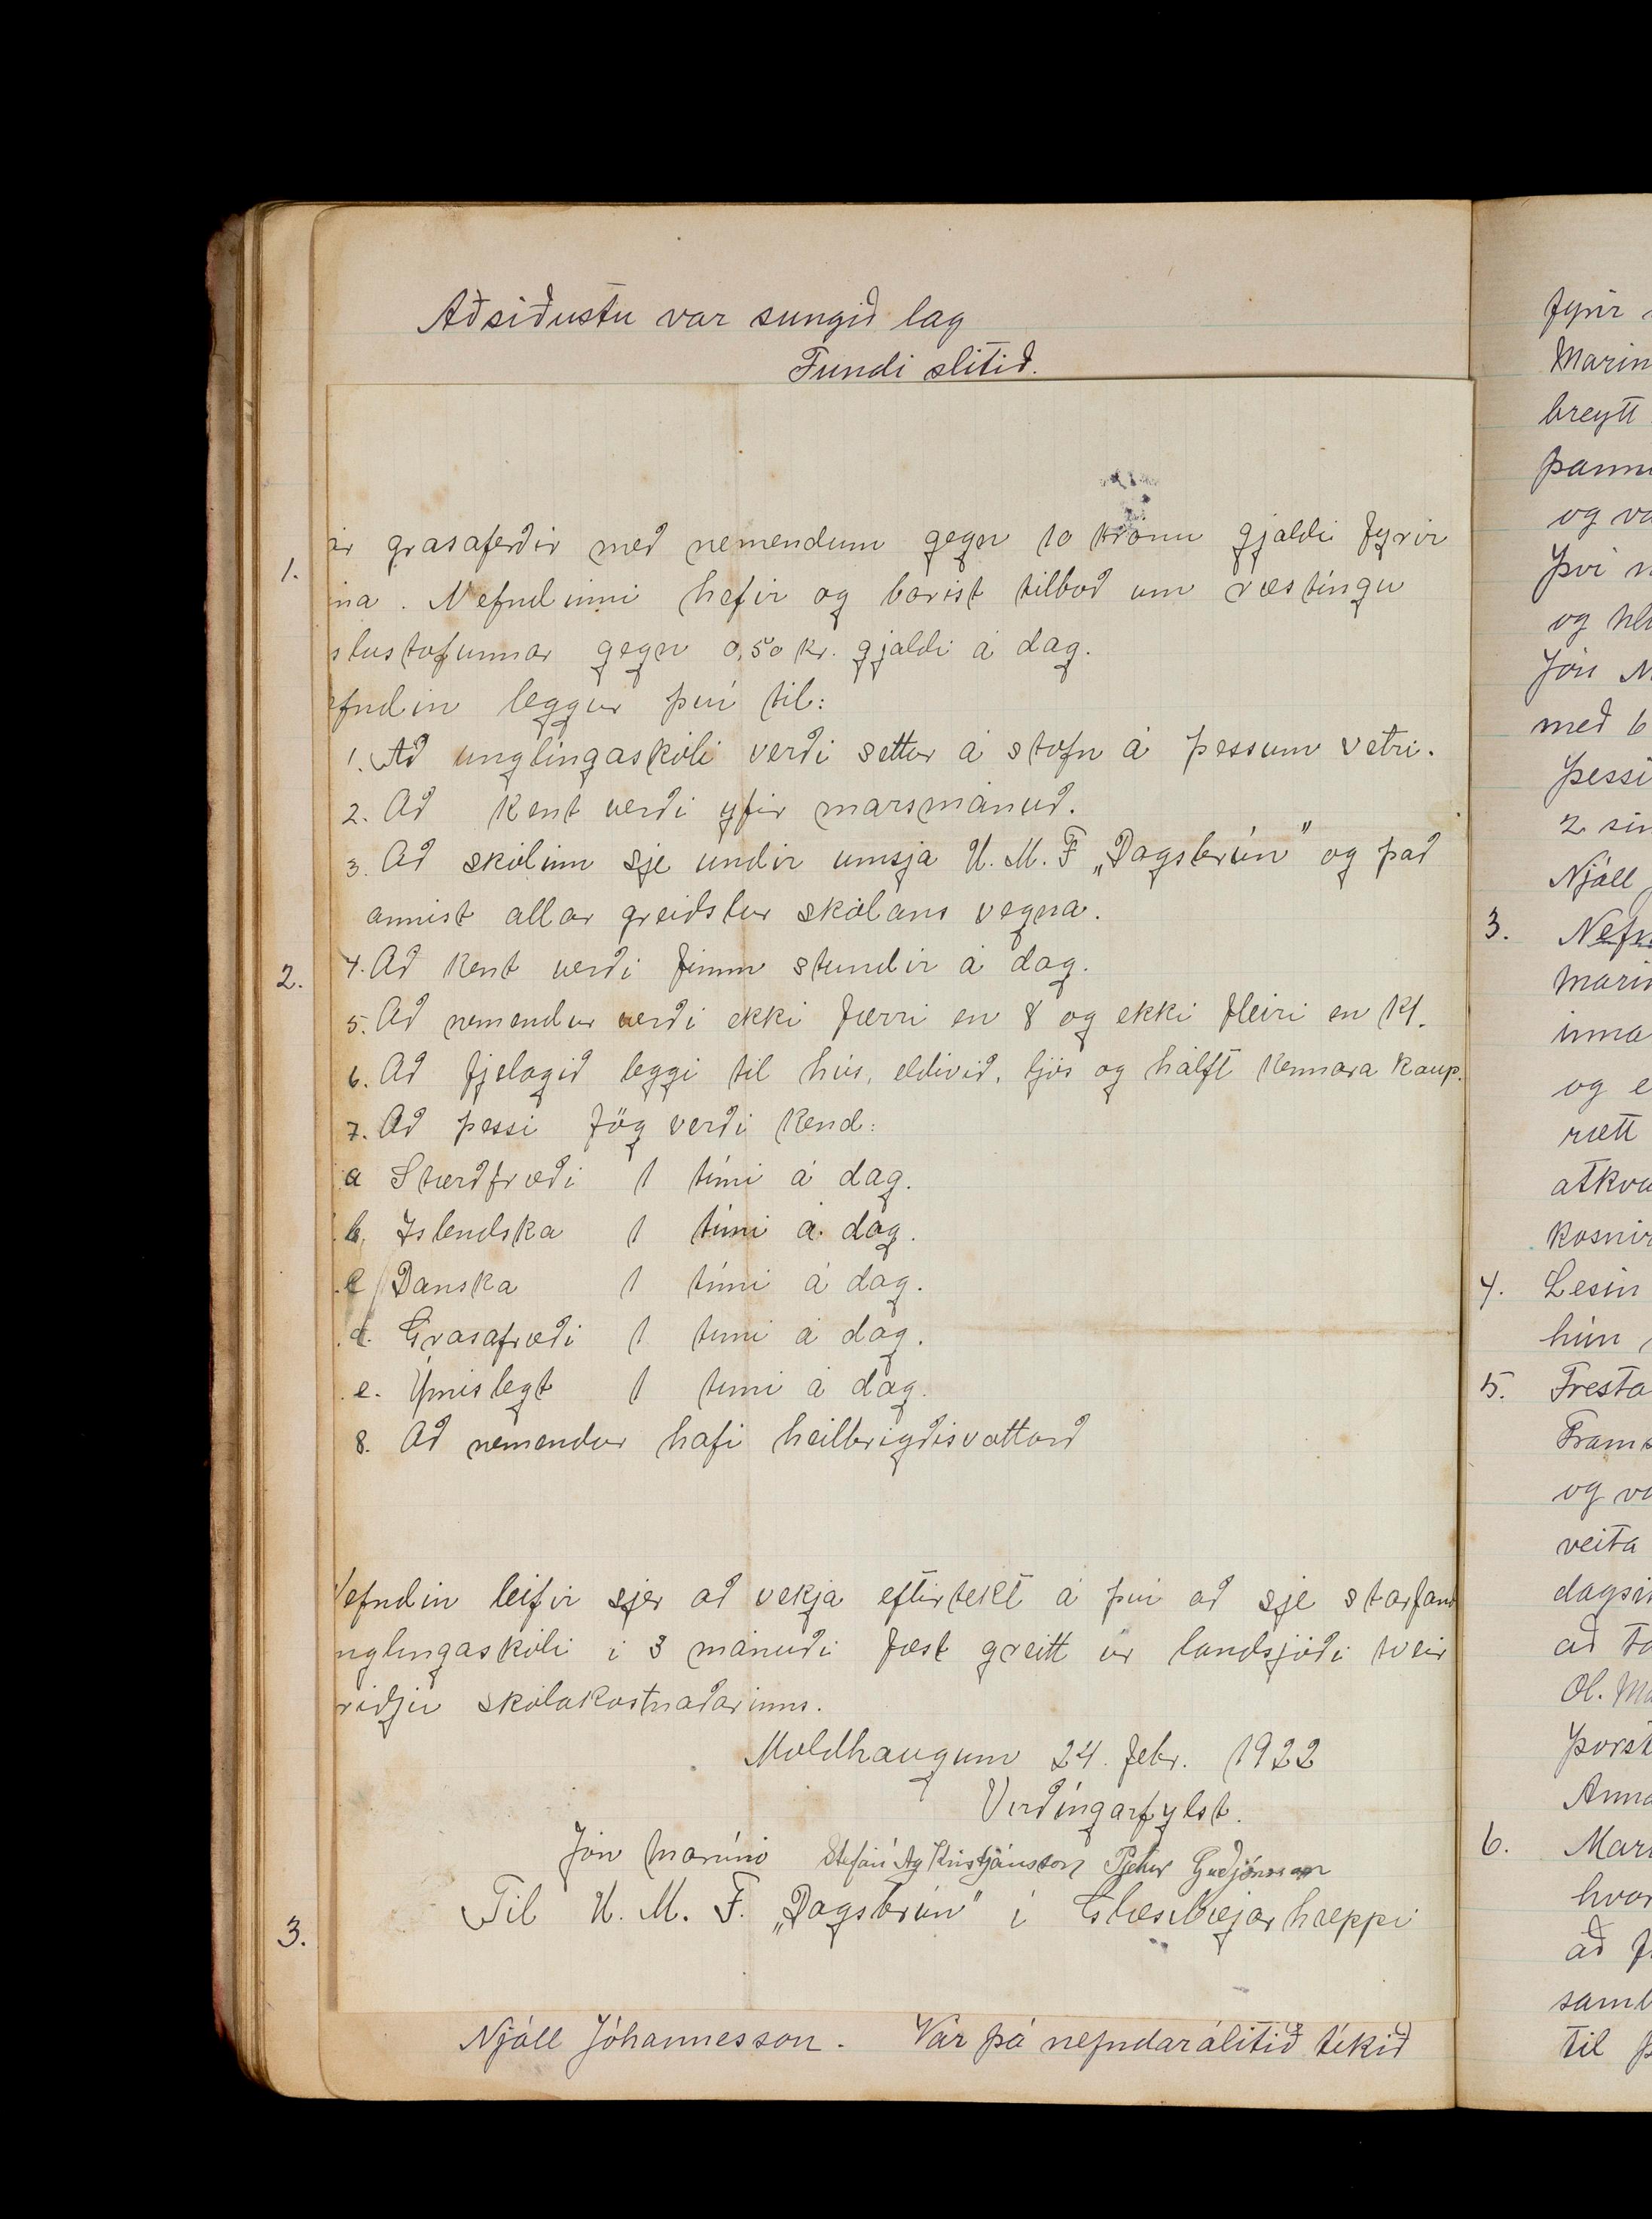 Aðsiðustu var sungið lag
Fundi slitið.
1.
ar grasaferðir með nemendum gegn 10 krónu gjaldi fyrir
na. Nefndinni hefir og borist tilboð um ræstingu
slustofunnar gegn 0,50 kr. gjaldi á dag.
efndin leggur því til:
1. Að unglingaskóli verði settur á stofn á þessum vetri.
2. Að kent verði yfir marsmánuð.
3. Að skólinn sje undir umsjá U. M. F „Dagsbrún" og það
annist allar greiðslur skólans vegna.
2.
4. Að kent verði fimm stundir á dag.
5. Að nemendur verði ekki færri en 8 og ekki fleiri en 14.
6. Að fjelagið leggi til hús, eldivið, ljós og hálft kennara kaup.
7. Að þessi fög verði kend:
a Stærðfræði 1 tími á dag.
b. Islendska 1 tími á dag.
c Danska 1 tími á dag.
d. Grasafræði 1 timi á dag.
e. Ýmislegt 1 timi á dag.
8. Að nemendur hafi heilbrigðisvottorð
Nefndin leifir sjer að vekja eftirtekt á því að sje starfand
nglingaskóli i 3 mánuði fæst greitt úr landsjóði tveir
riðju skólakostnaðarinns.
Moldhaugum 24. febr. 1922
Virðingarfylst.
Jón Marínó Stefán Ag Kristjánsson Pjetur Guðjónsson
Til U. M. F. „Dagsbrún" i Glæsibæjarhreppi
3.
Njáll Jóhannesson. Var þá nefndarálitið tekið
fyrir
Marin
breytt
þann
og va
því
og hl
Jón
með 6
þessi
2 sin
Njáll
3. Nefn
Marin
inna
og e
rætt
atkvæ
kosnir
4. Lesin
hún
5. Fresta
Frams
og va
veita
dagsi
að
Ol. Ma
þorst
Anna
6. Mari
hvor
að
samb
til þ